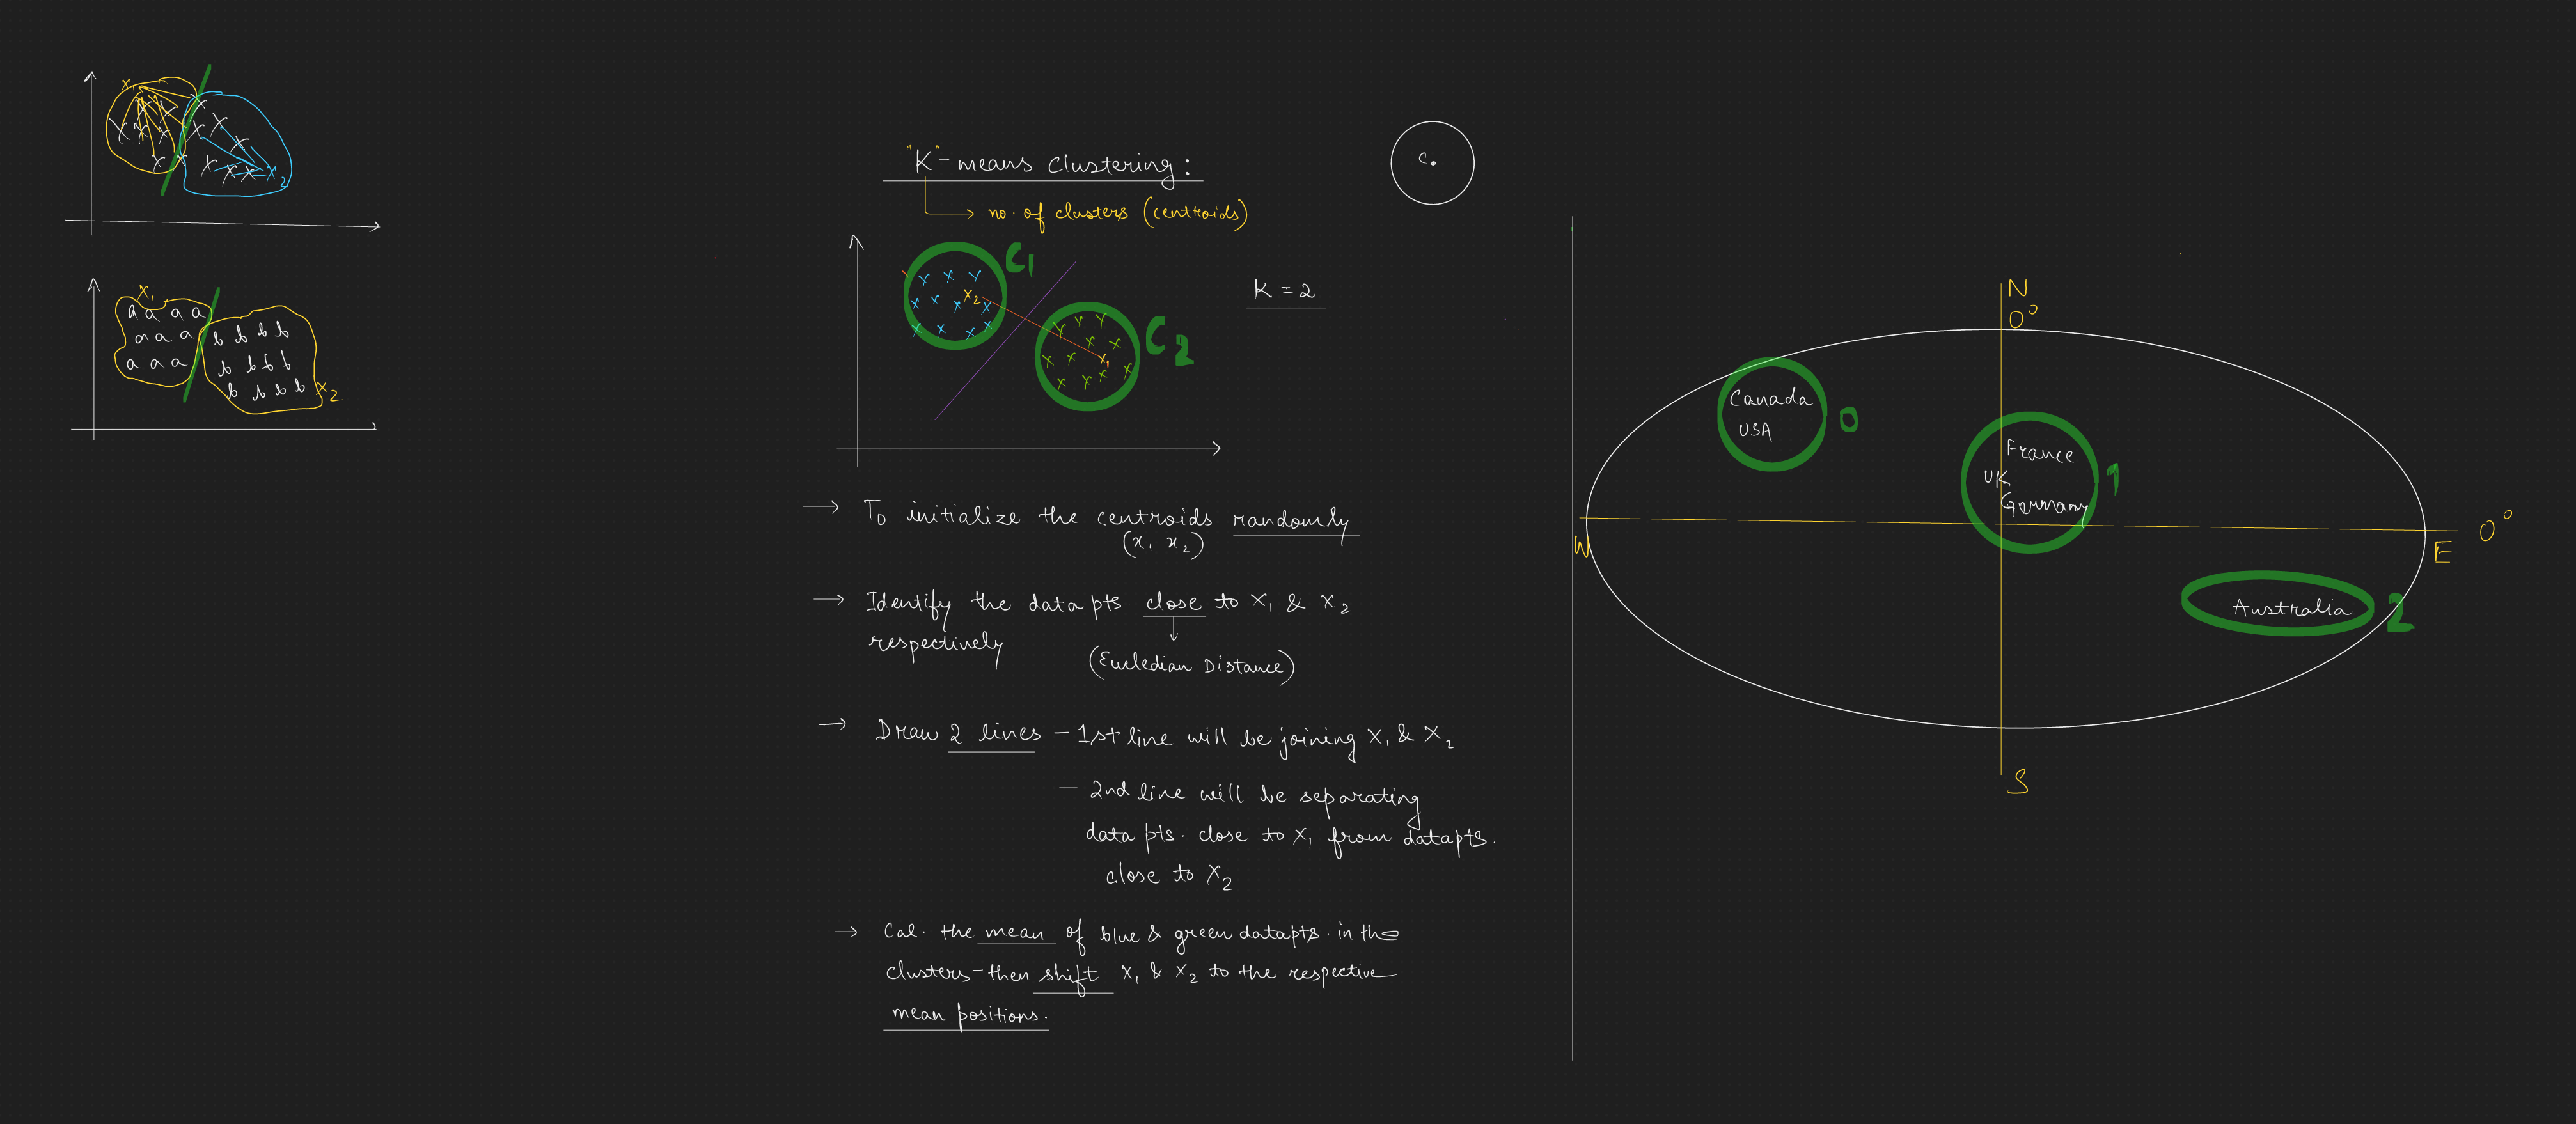 x₁
x₂
x₁
a a a a
a a a
a a a
b b b b
b b b b
b b b b
x₂
"K"-means Clustering :
→ no. of clusters (centroids)
C.
C₁
x₂
K = 2
C₂
x₁
→ To initialize the centroids randomly
(x₁ x₂)
→ Identify the data pts. close to x₁ & x₂
respectively
(Eucledian Distance)
→ Draw 2 lines – 1st line will be joining x₁ & x₂
– 2nd line will be separating
data pts. close to x₁ from datapts.
close to x₂
→ Cal. the mean of blue & green datapts. in the
clusters – then shift x₁ & x₂ to the respective
mean positions.
N
0°
Canada
USA
0
France
UK
Germany
1
W
E
0°
Australia
2
S